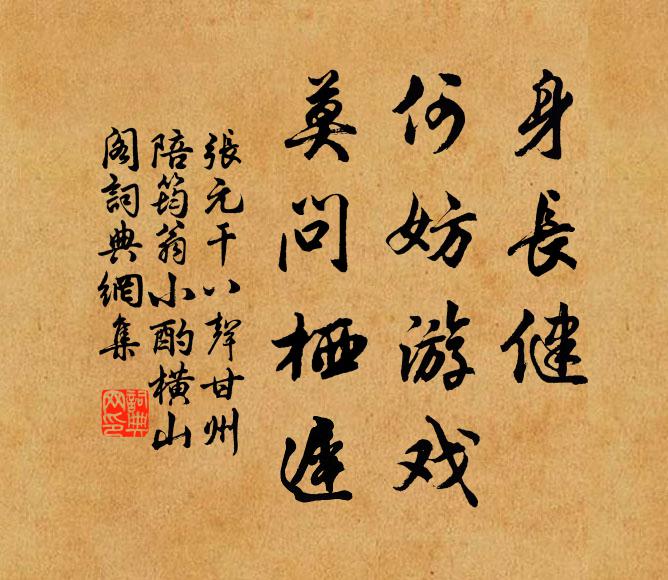 身長健
何妨游戏
莫問栖遲
張元干八聲甘州
陪筠翁小酌横山
阁詞典網集
詞典网印